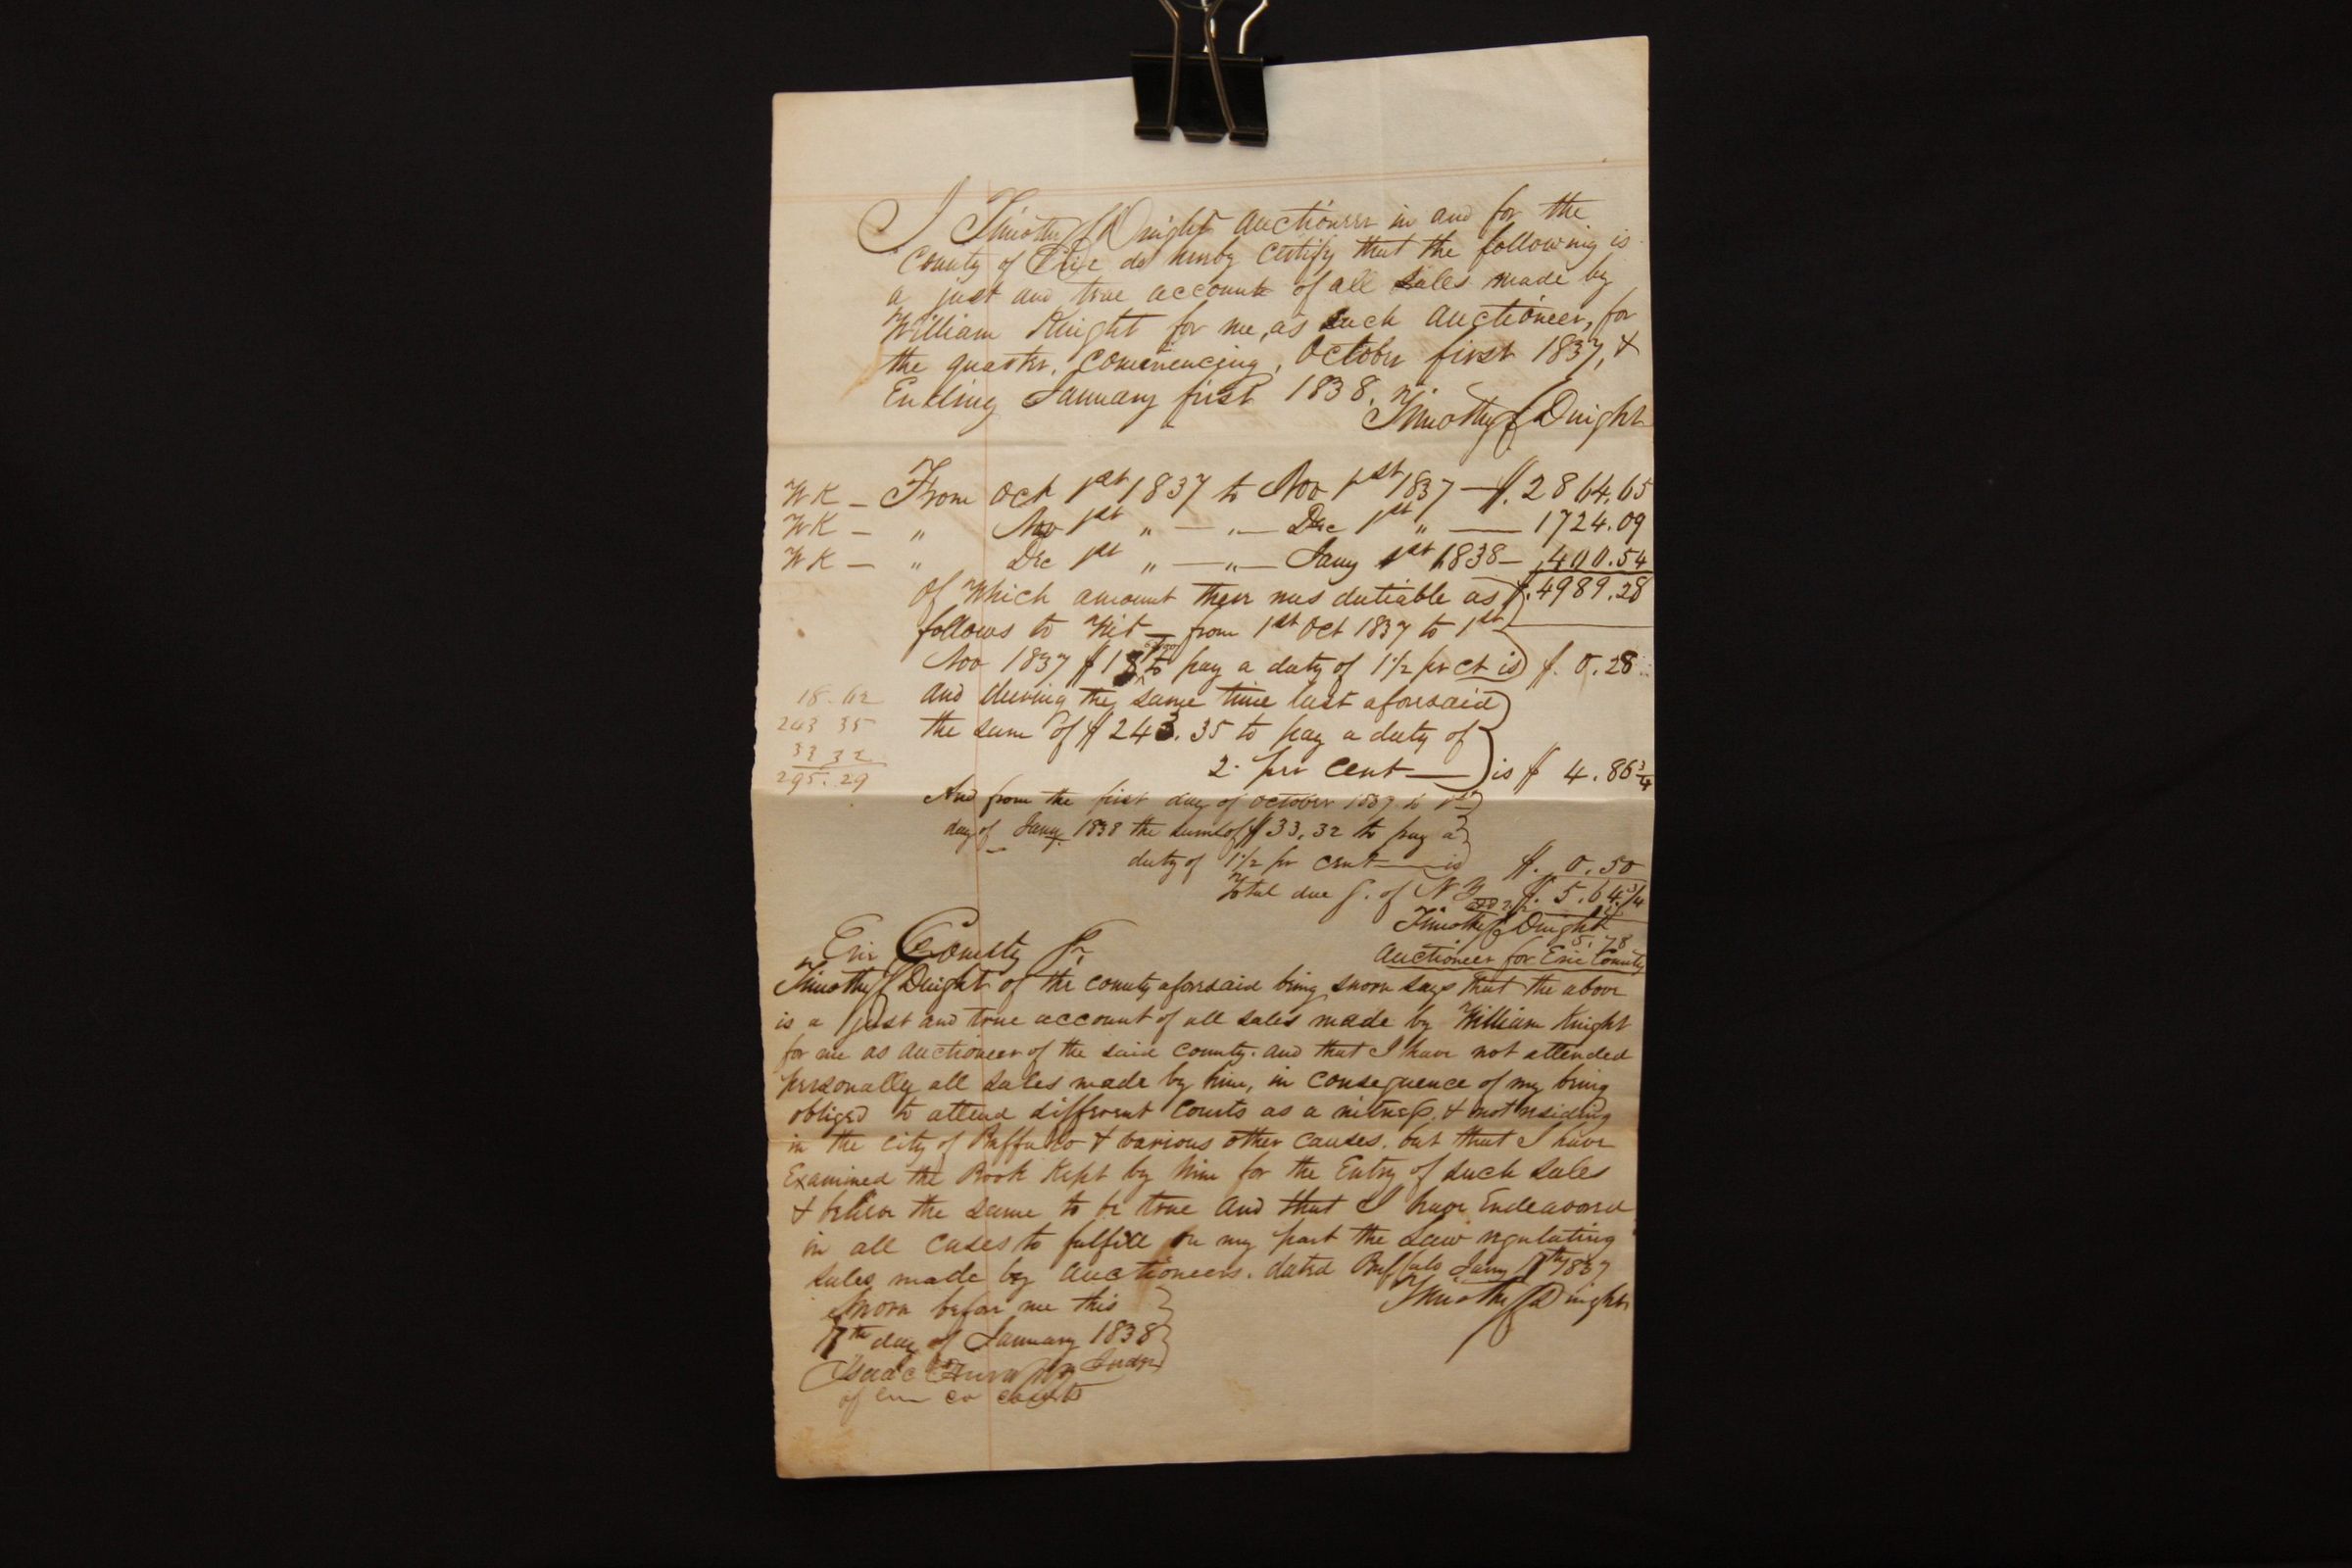 I Timothy Dwight Auctioneer in and for the
County of Erie do hereby certify that the following is
a just and true account of all sales made by
William Knight for me, as such Auctioneer, for
the quarter, Commencing, October first 1837, &
Ending January first 1838.
Timothy Dwight
WK — From Oct 1st 1837 to Nov 1st 1837 — $. 2864.65
WK — " Nov 1st " — " — Dec 1st " — 1724.09
WK — " Dec 1st " — " — Jany 1st 1838 — 400.54
Of which amount there was dutiable as $. 4989.28
follows to Wit — from 1st Oct 1837 to 1st
Nov 1837 $18 to pay a duty of 1½ pr ct is $. 0.28
18.62 and during the same time last aforesaid
243 35 the sum of $243.35 to pay a duty of
33 32 2 per cent — is $ 4.86¾
295.29
And from the first day of October 1837 to 1st
day of Jany 1838 the sum of $33.32 to pay a
duty of 1½ pr cent — is $. 0.50
Total due S. of N Y $. 5.64¾
Timothy Dwight
5.78
Auctioneer for Erie County
Erie County Ss
Timothy Dwight of the county aforesaid being sworn says that the above
is a just and true account of all sales made by William Knight
for me as auctioneer of the said county. and that I have not attended
personally all sales made by him, in consequence of my being
obliged to attend different Courts as a witness, & not residing
in the city of Buffalo & various other causes. but that I have
Examined the Book Kept by him for the Entry of such sales
& believe the same to be true and that I have Endeavored
in all cases to fulfill on my part the Law regulating
sales made by auctioneers. dated Buffalo Jany 1837
Sworn before me this
Timothy Dwight
day of January 1838
Isaac Judge
of Erie co courts